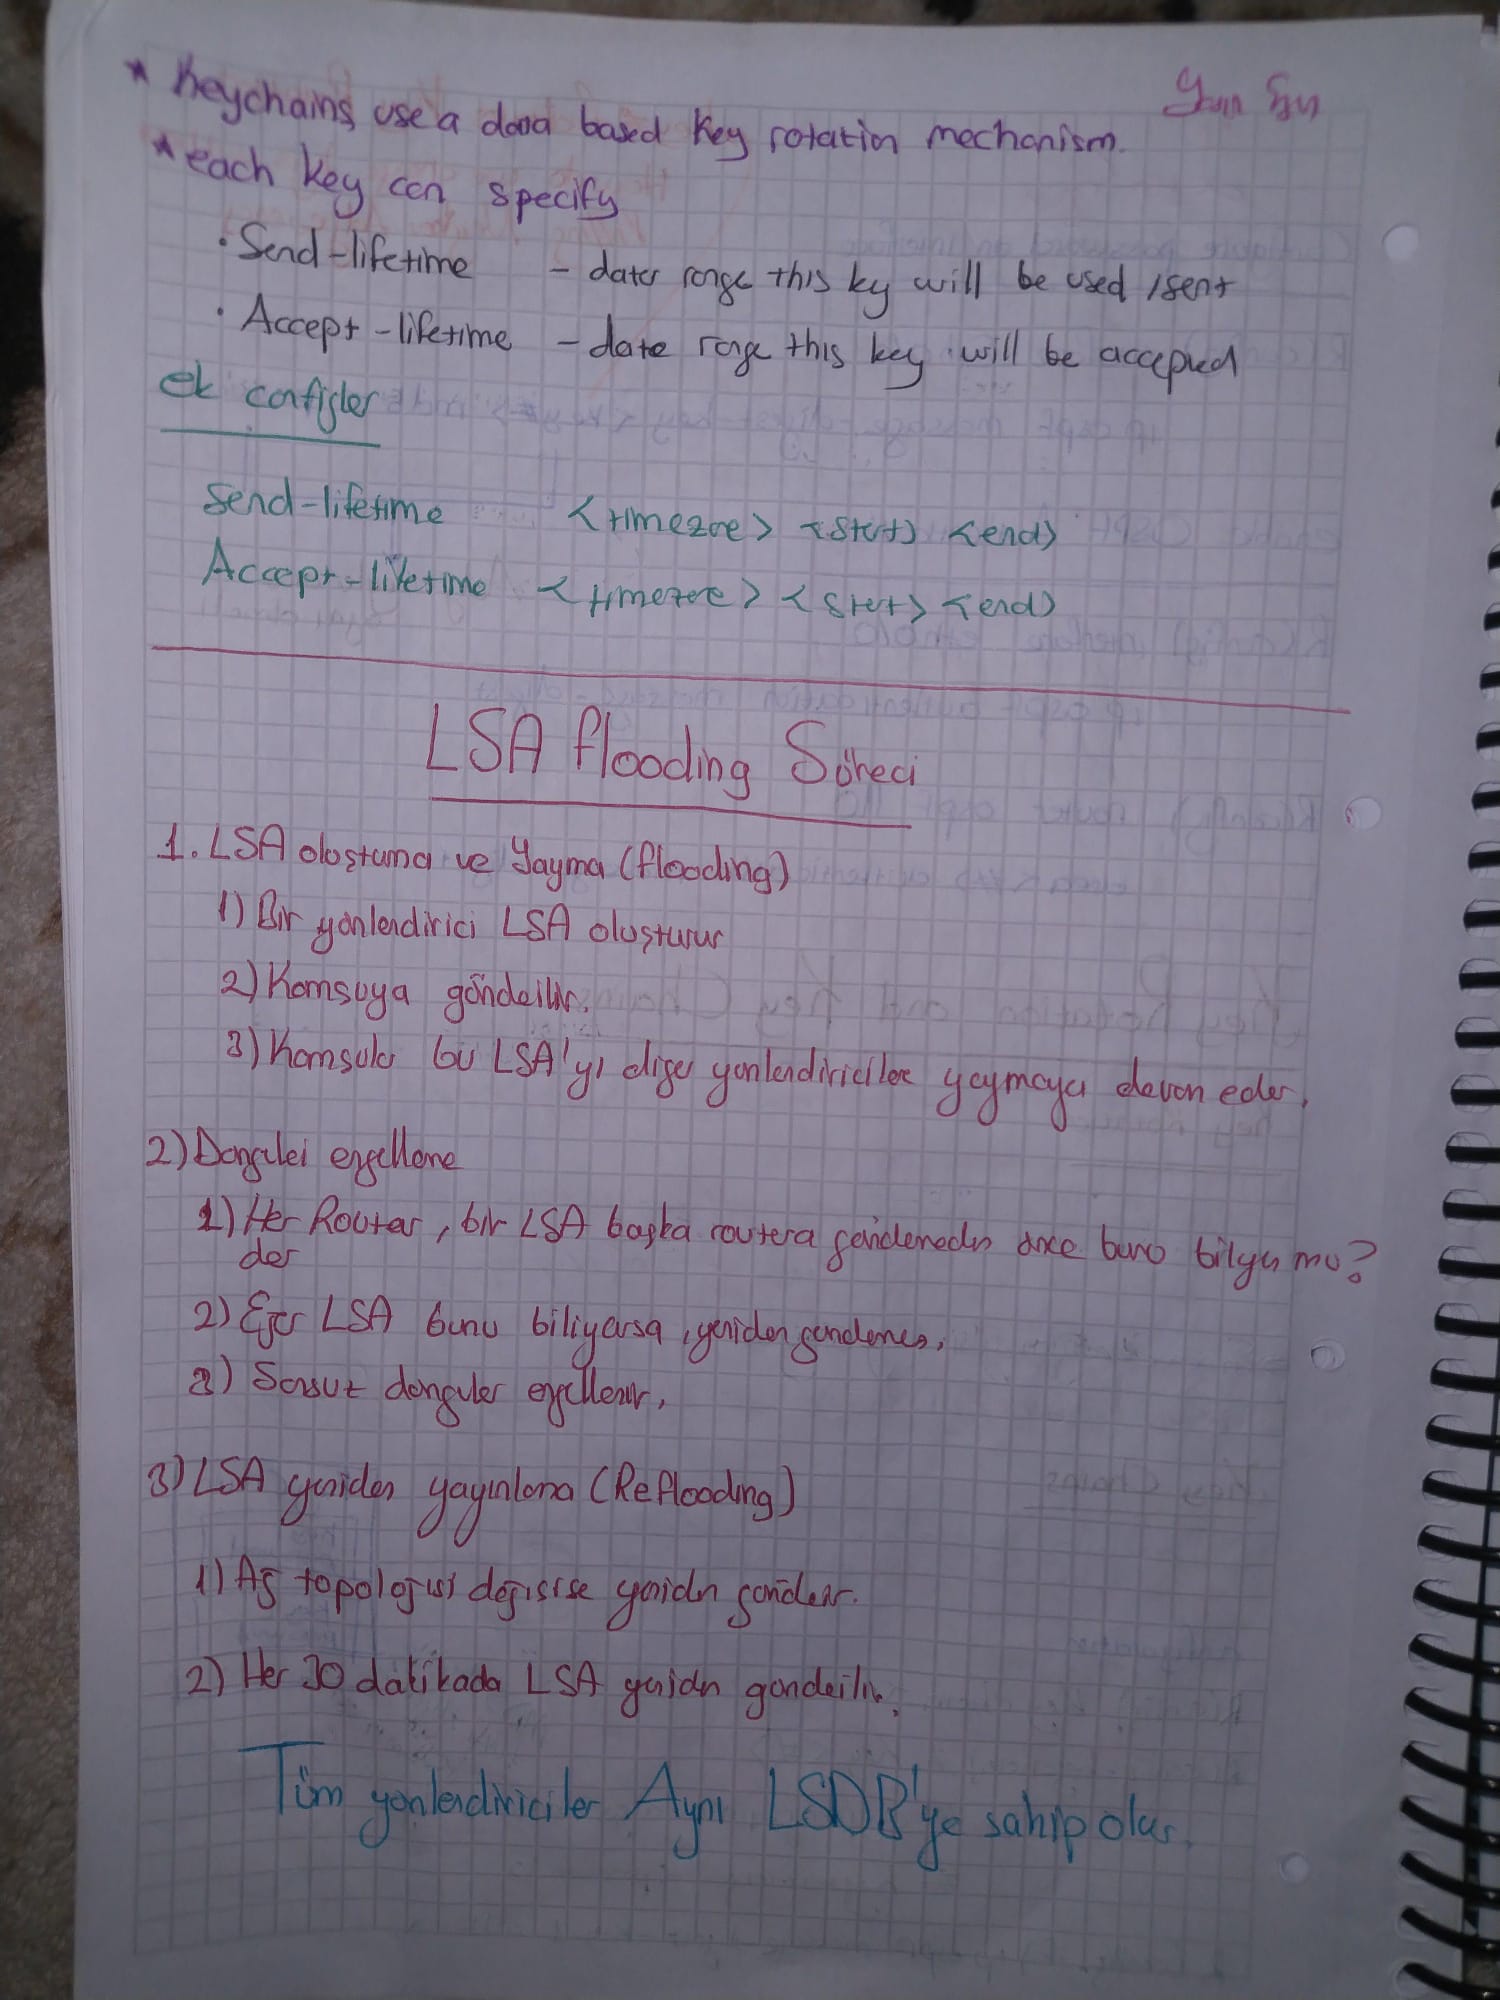 * Keychains use a data based key rotation mechanism.
* each key can specify
· Send-lifetime - date range this key will be used / sent
· Accept-lifetime - date range this key will be accepted
ek configler
Send-lifetime <timezone> <start> <end>
Accept-lifetime <timezone> <start> <end>
LSA flooding Süreci
1. LSA oluşturma ve Yayma (flooding)
1) Bir yönlendirici LSA oluşturur
2) Komsuya gönderilir.
3) Komsular bu LSA'yı diğer yonlendiricilere yaymaya devam eder.
2) Dongulei engelleme
1) Her Router, bir LSA başka routera göndermeden önce bunu biliyor mu?
der
2) Eğer LSA bunu biliyorsa, yeniden gondermes.
3) Sonsuz donguler engellenir.
3) LSA yeniden yayınlama (Reflooding)
1) Ağ topolojisi değisirse yeniden gönderir.
2) Her 30 dakikada LSA yeniden gonderilir.
Tüm yonlendiriciler Aynı LSDB'ye sahip olur.